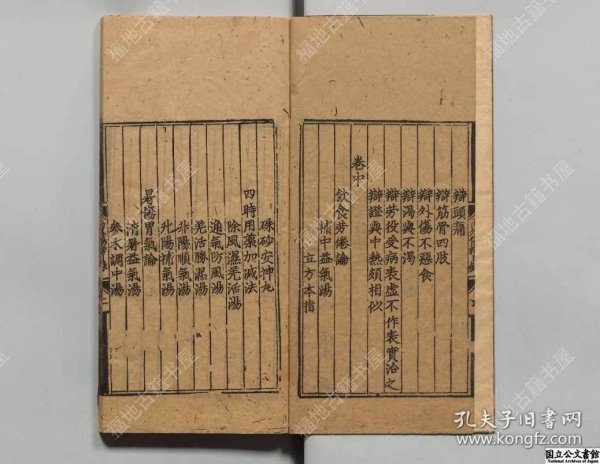 辯頭痛
辯筋骨四肢
辯外傷不惡食
辯渴與不渴
辯勞役受病表虛不作表實治之
辯證與中熱頗相似
卷中
飲食勞倦論
補中益氣湯
立方本指
硃砂安神丸
四時用藥加減法
除風濕羌活湯
通氣防風湯
羌活勝濕湯
升陽順氣湯
升陽補氣湯
暑傷胃氣論
清暑益氣湯
參朮調中湯
福地古籍书屋
孔夫子旧书网
www.kongfz.com
国立公文書館
National Archives of Japan